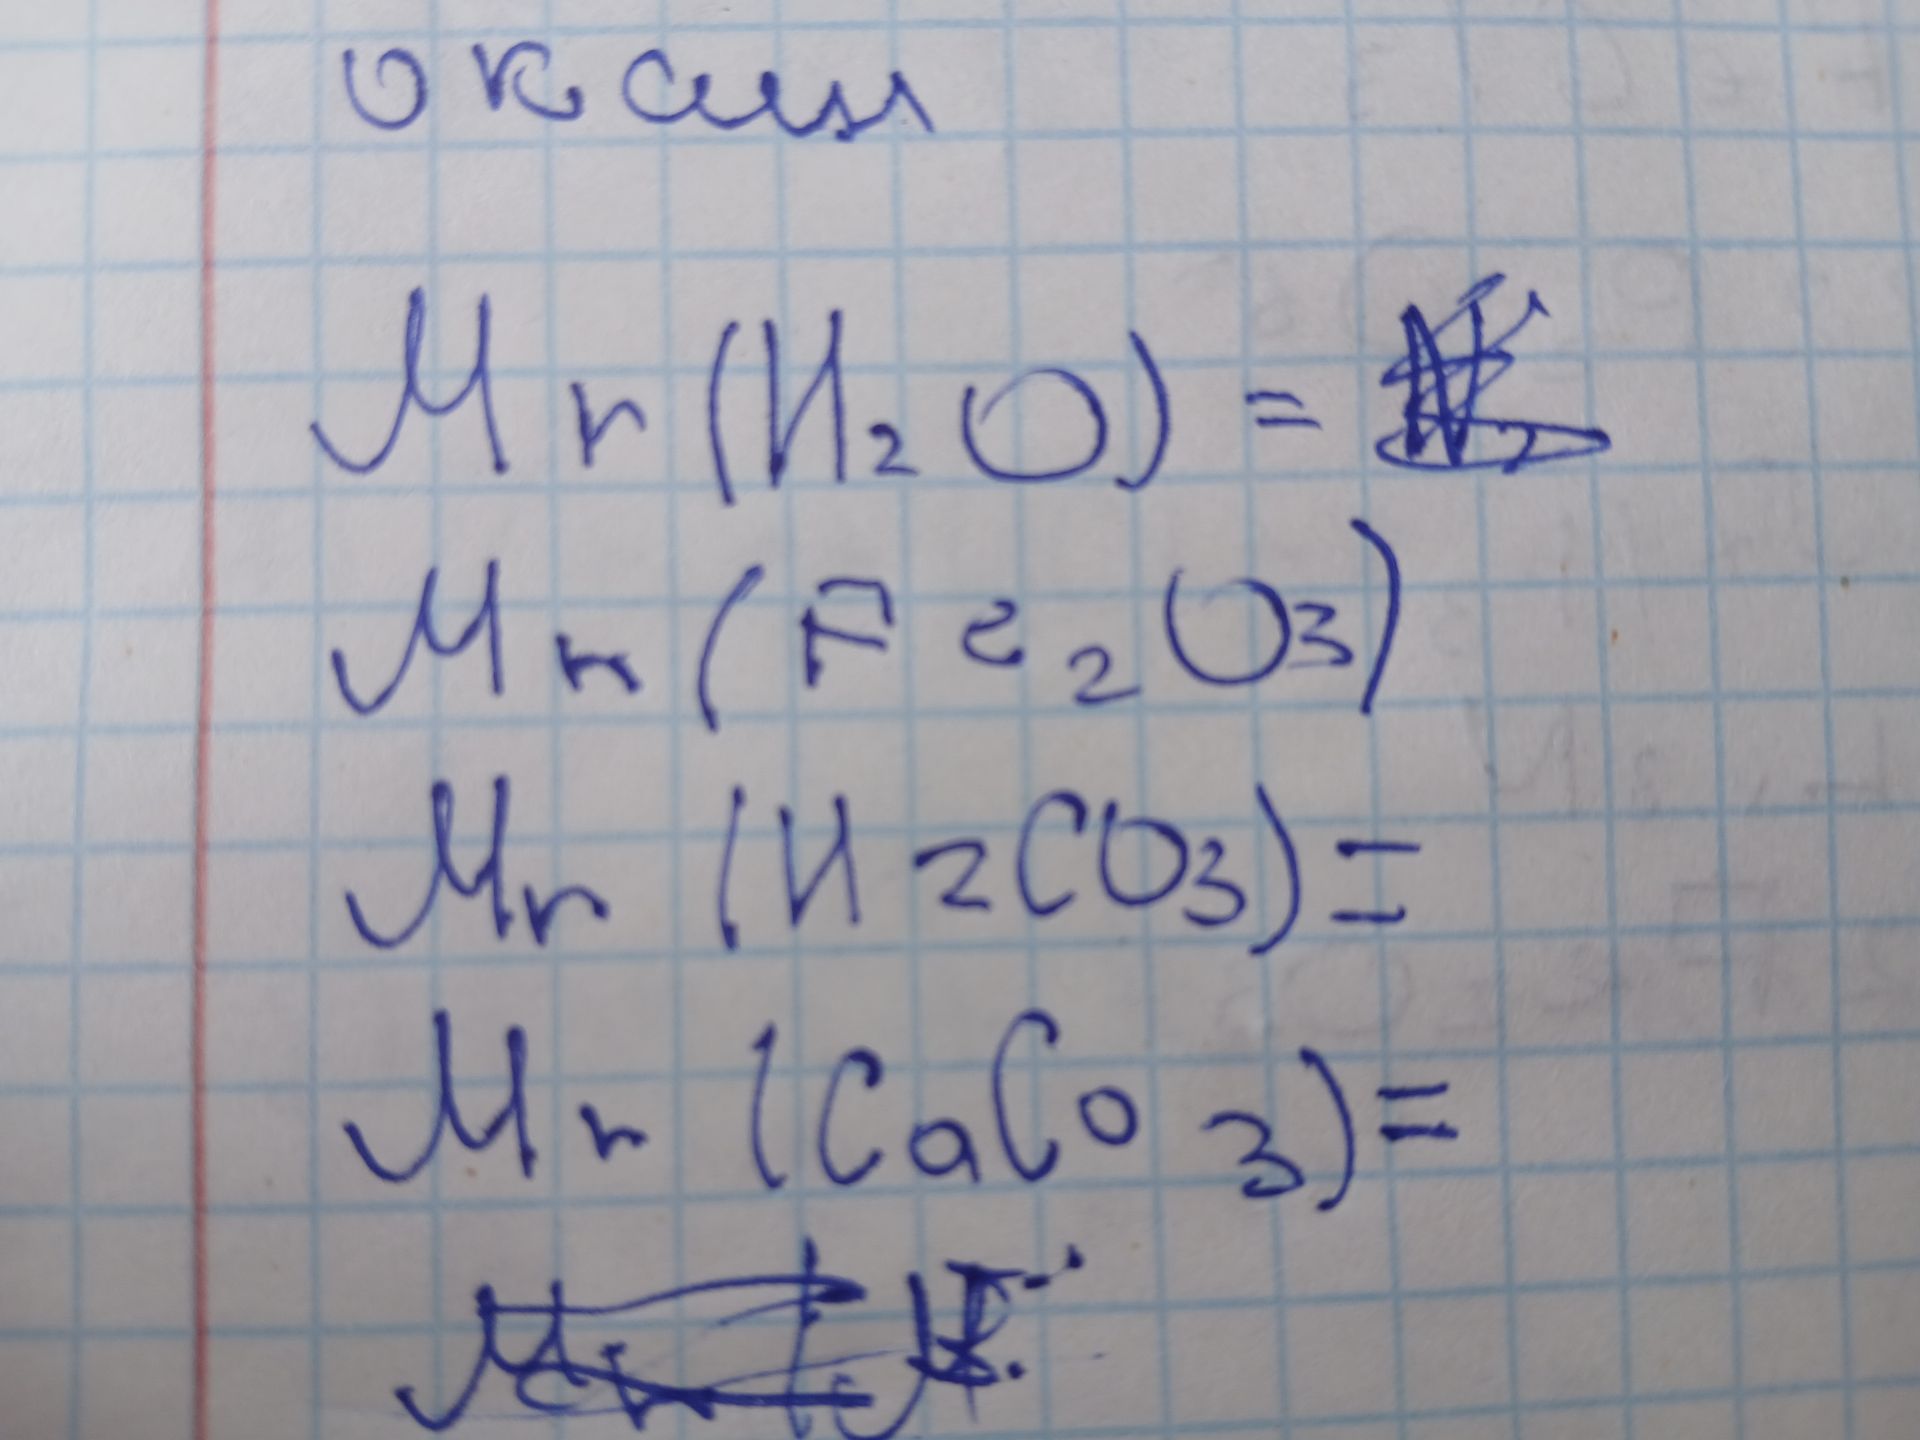 Mr (H₂O) =
Mr (Fe₂O₃)
Mr (H2CO3) =
Mr (CaCo3) =